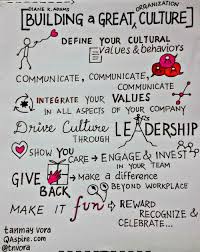 DIANE K. ADAMS
[BUILDING A GREAT, CULTURE]
ORGANIZATION
DEFINE YOUR CULTURAL
values & behaviors
COMMUNICATE, COMMUNICATE,
COMMUNICATE
INTEGRATE YOUR VALUES
IN ALL ASPECTS OF YOUR COMPANY
Drive Culture LEADERSHIP
THROUGH
SHOW YOU
CARE → ENGAGE & INVEST
IN YOUR TEAM
GIVE → Make a difference
BACK BEYOND WORKPLACE
MAKE IT fun → REWARD
RECOGNIZE &
CELEBRATE...
tanmay vora
QAspire.com
@tnvora